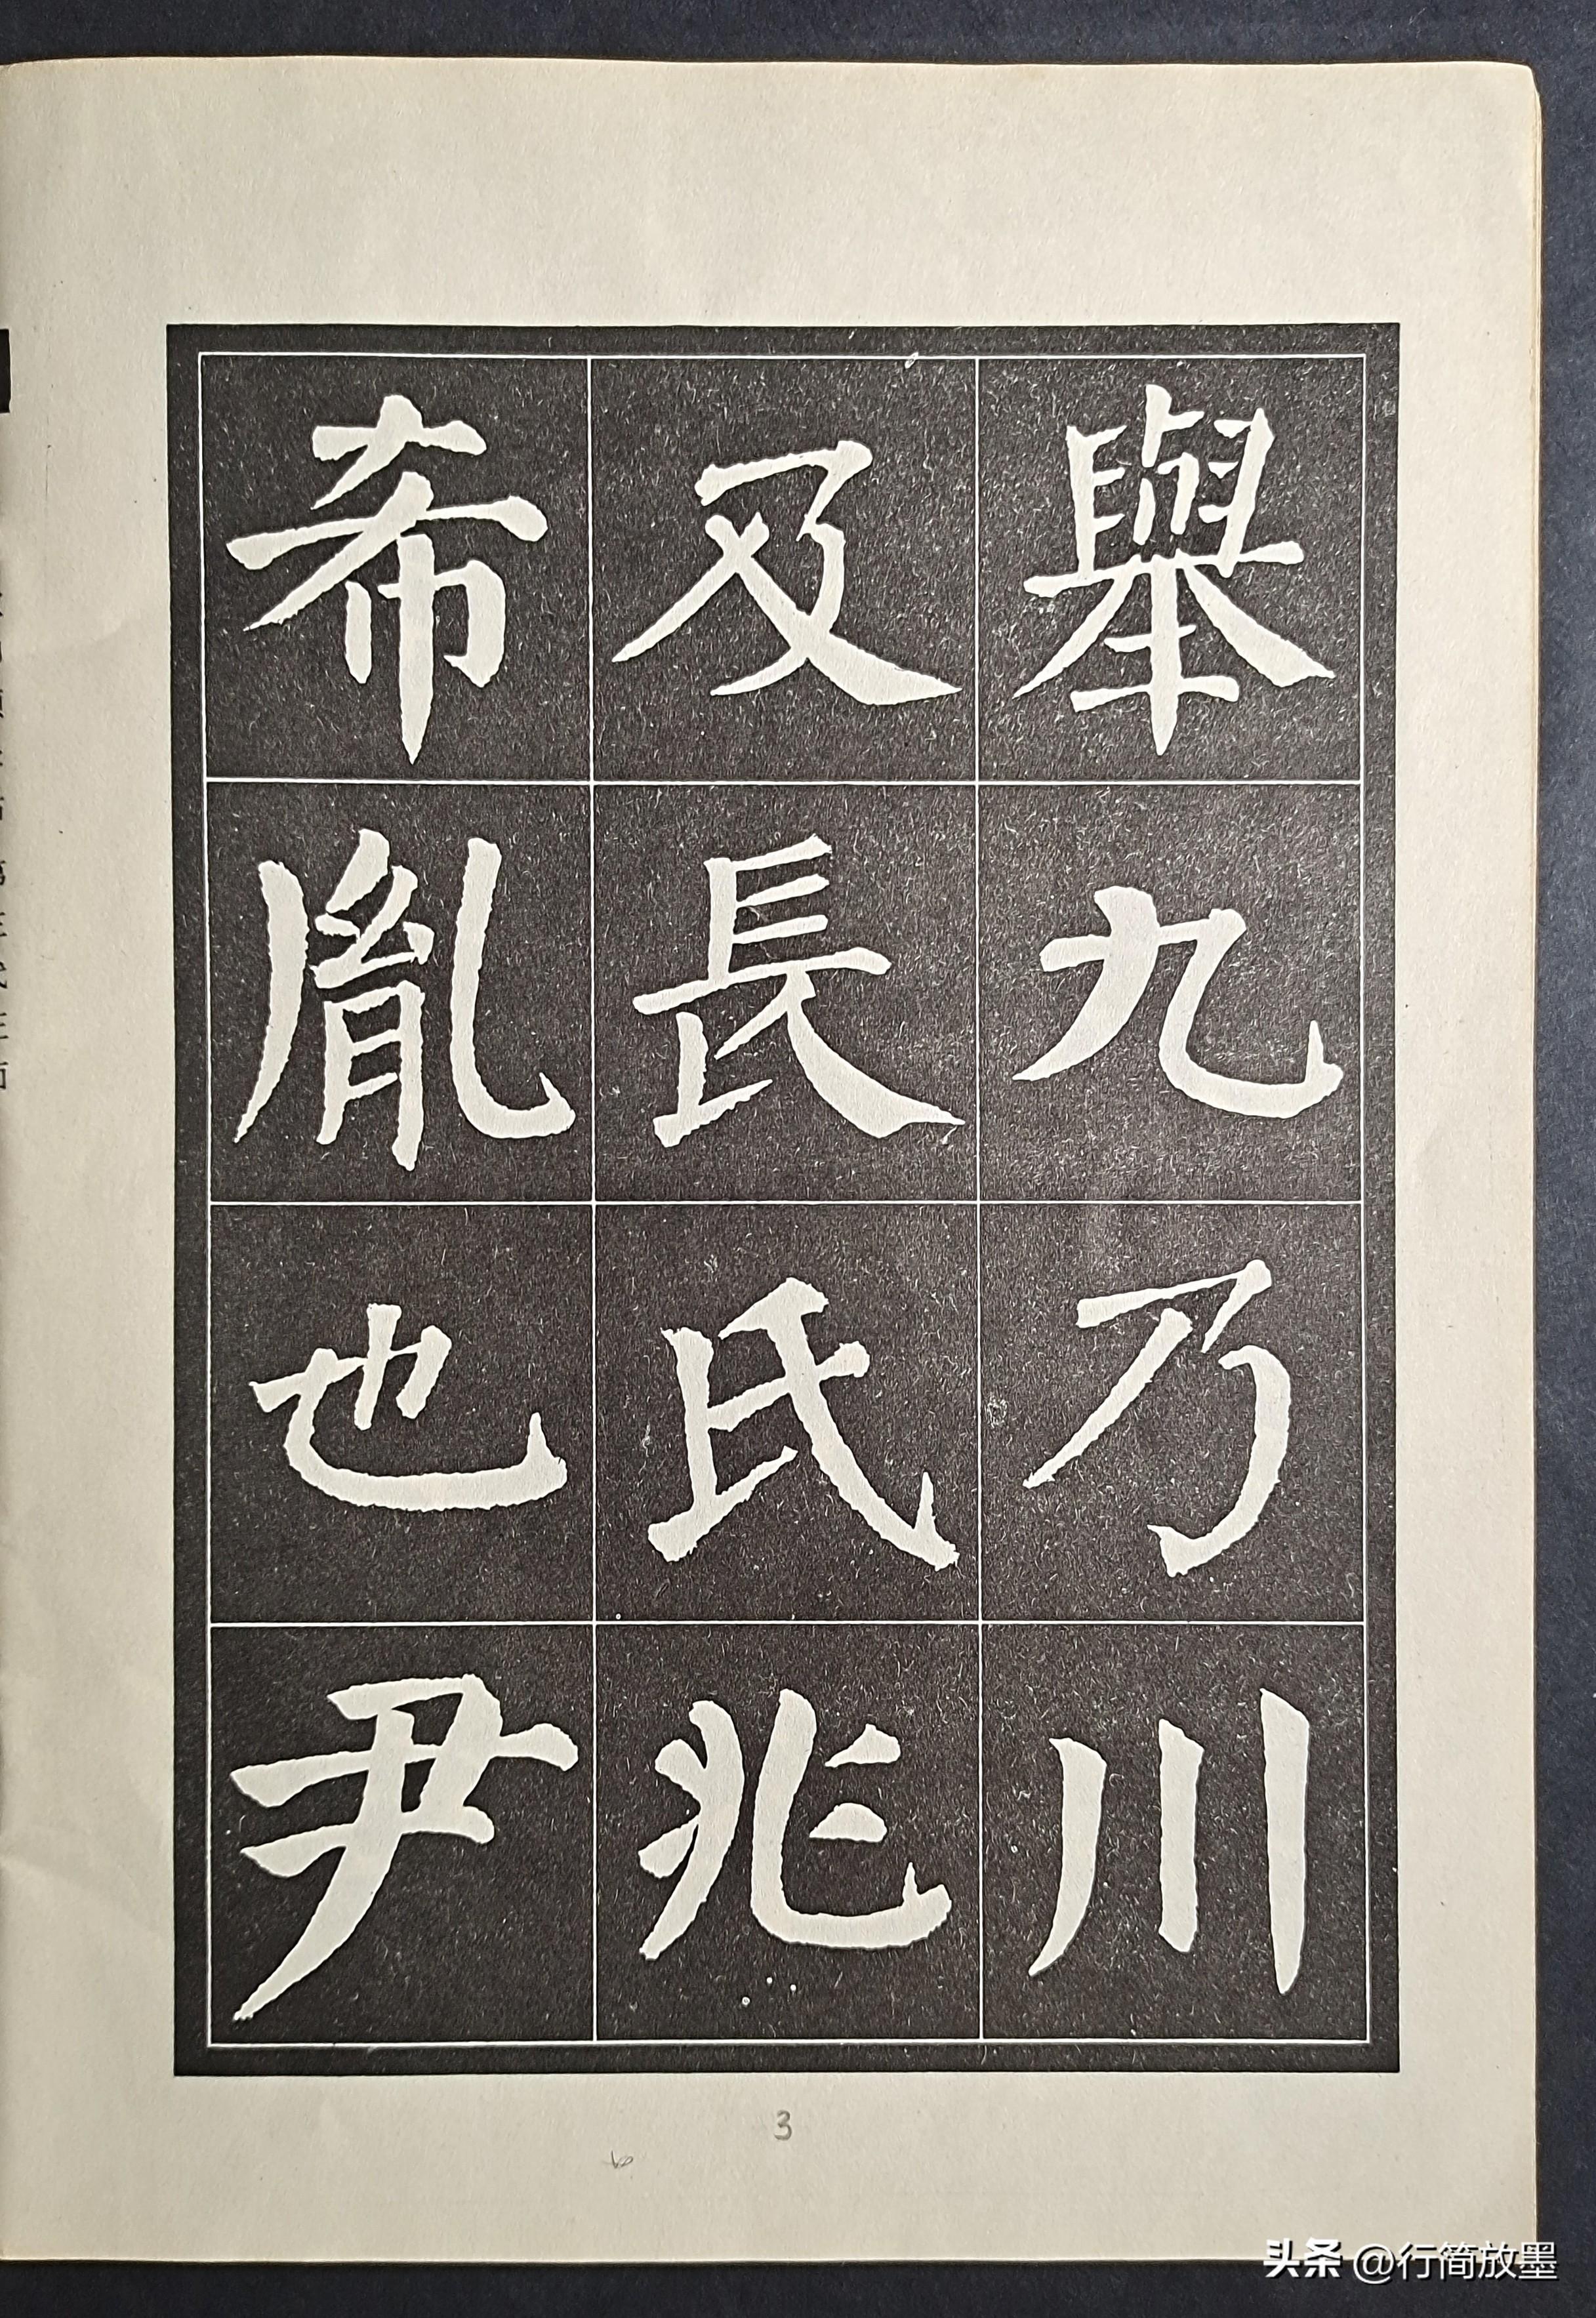 舉九乃川
及長氏兆
希胤也尹
3
头条 @行简放墨